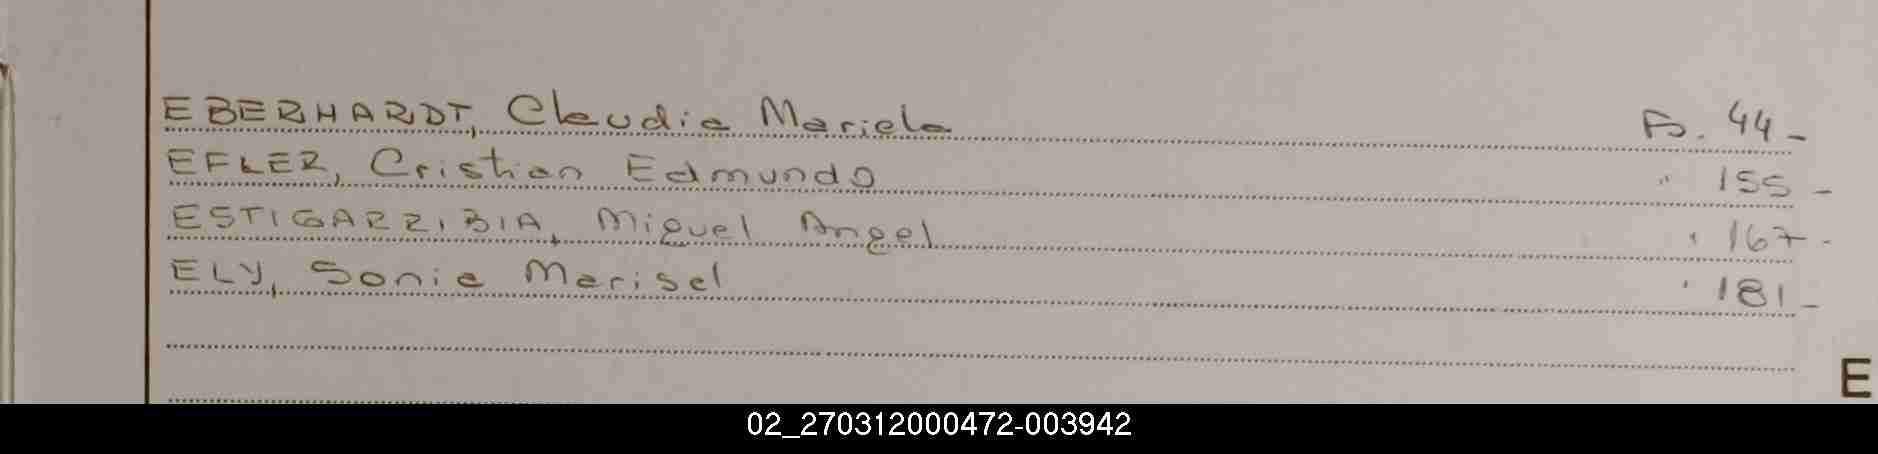 EBERHARDT, Claudia Mariela Fs. 44-
EFLER, Cristian Edmundo " 155-
ESTIGARRIBIA, Miguel Angel " 167-
ELY, Sonia Marisel " 181-
E
02_270312000472-003942